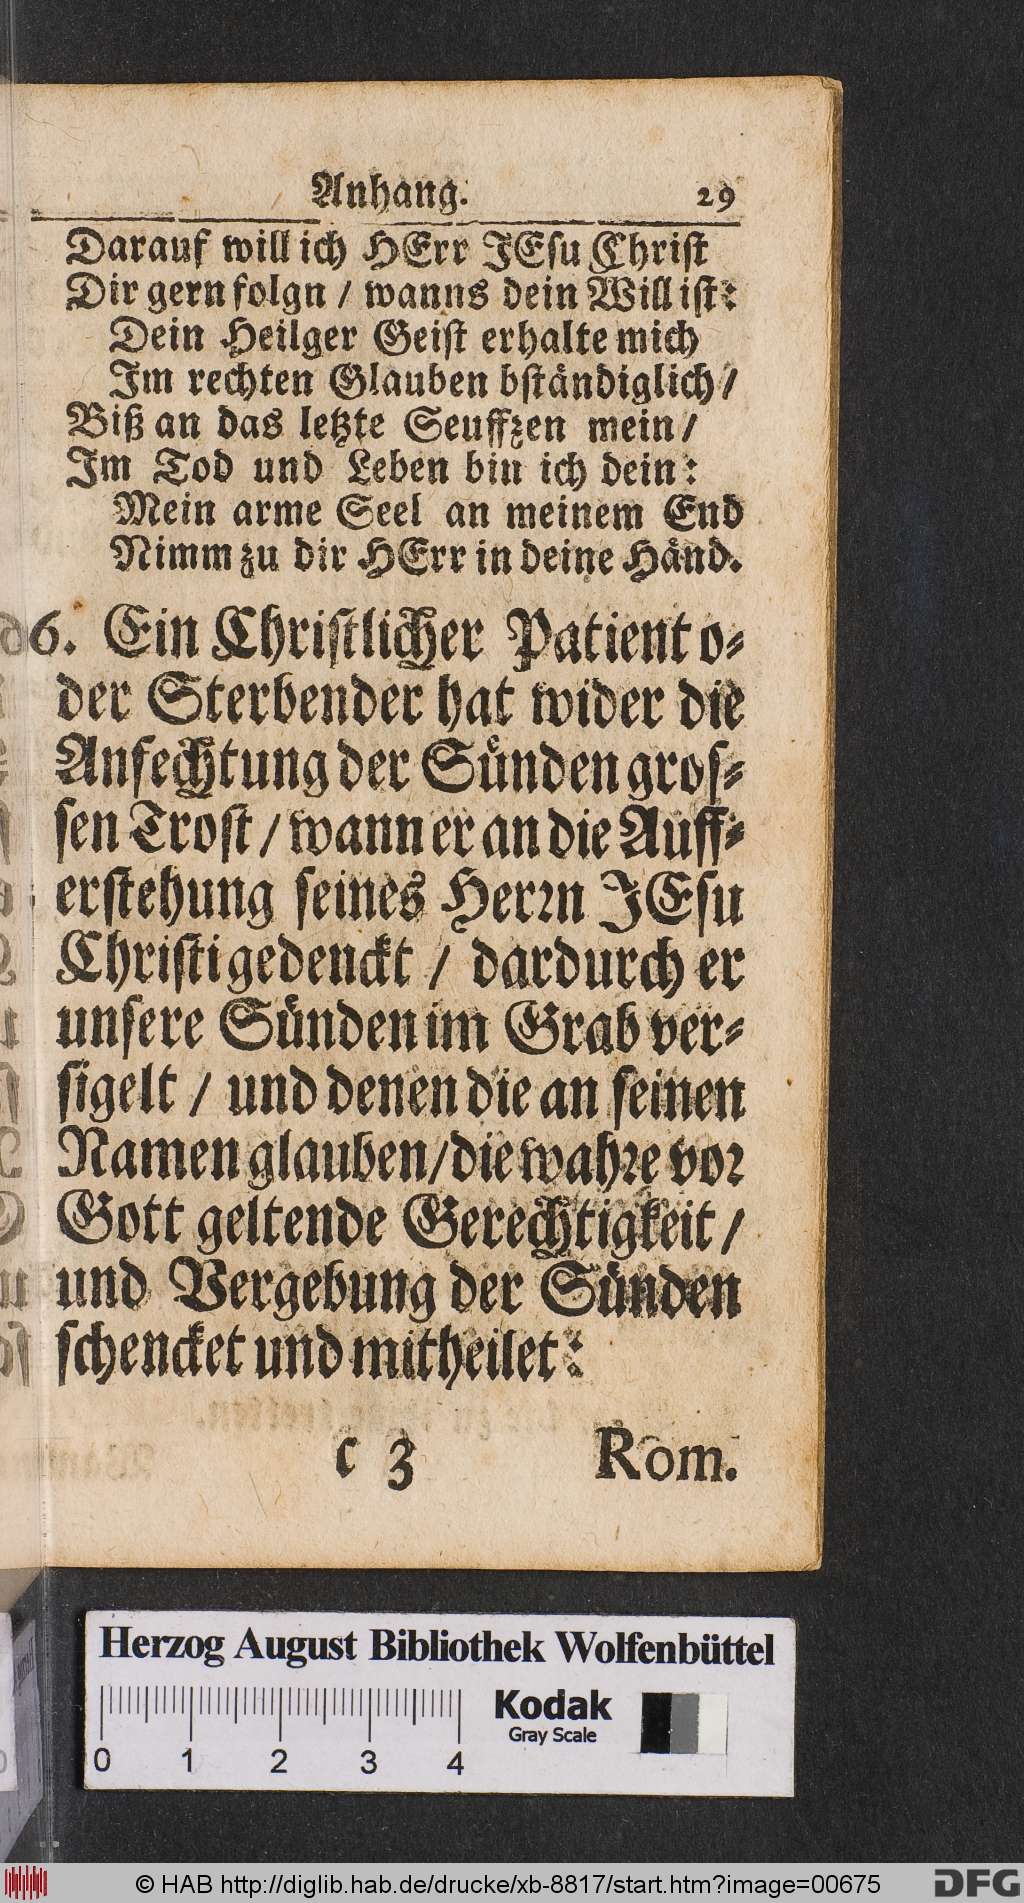 Anhang. 29
Darauf will ich HErr JEsu Christ
Dir gern folgn / wanns dein Will ist:
Dein Heilger Geist erhalte mich
Im rechten Glauben bständiglich /
Biß an das letzte Seuffzen mein /
Im Tod und Leben bin ich dein:
Mein arme Seel an meinem End
Nimm zu dir HErr in deine Händ.
6. Ein Christlicher Patient o-
der Sterbender hat wider die
Anfechtung der Sünden gros-
sen Trost / wann er an die Auff-
erstehung seines Herrn JEsu
Christi gedenckt / dardurch er
unsere Sünden im Grab ver-
sigelt / und denen die an seinen
Namen glauben / die wahre vor
Gott geltende Gerechtigkeit /
und Vergebung der Sünden
schencket und mitheilet:
c 3 Rom.
Herzog August Bibliothek Wolfenbüttel
Kodak
Gray Scale
0 1 2 3 4
© HAB http://diglib.hab.de/drucke/xb-8817/start.htm?image=00675
DFG